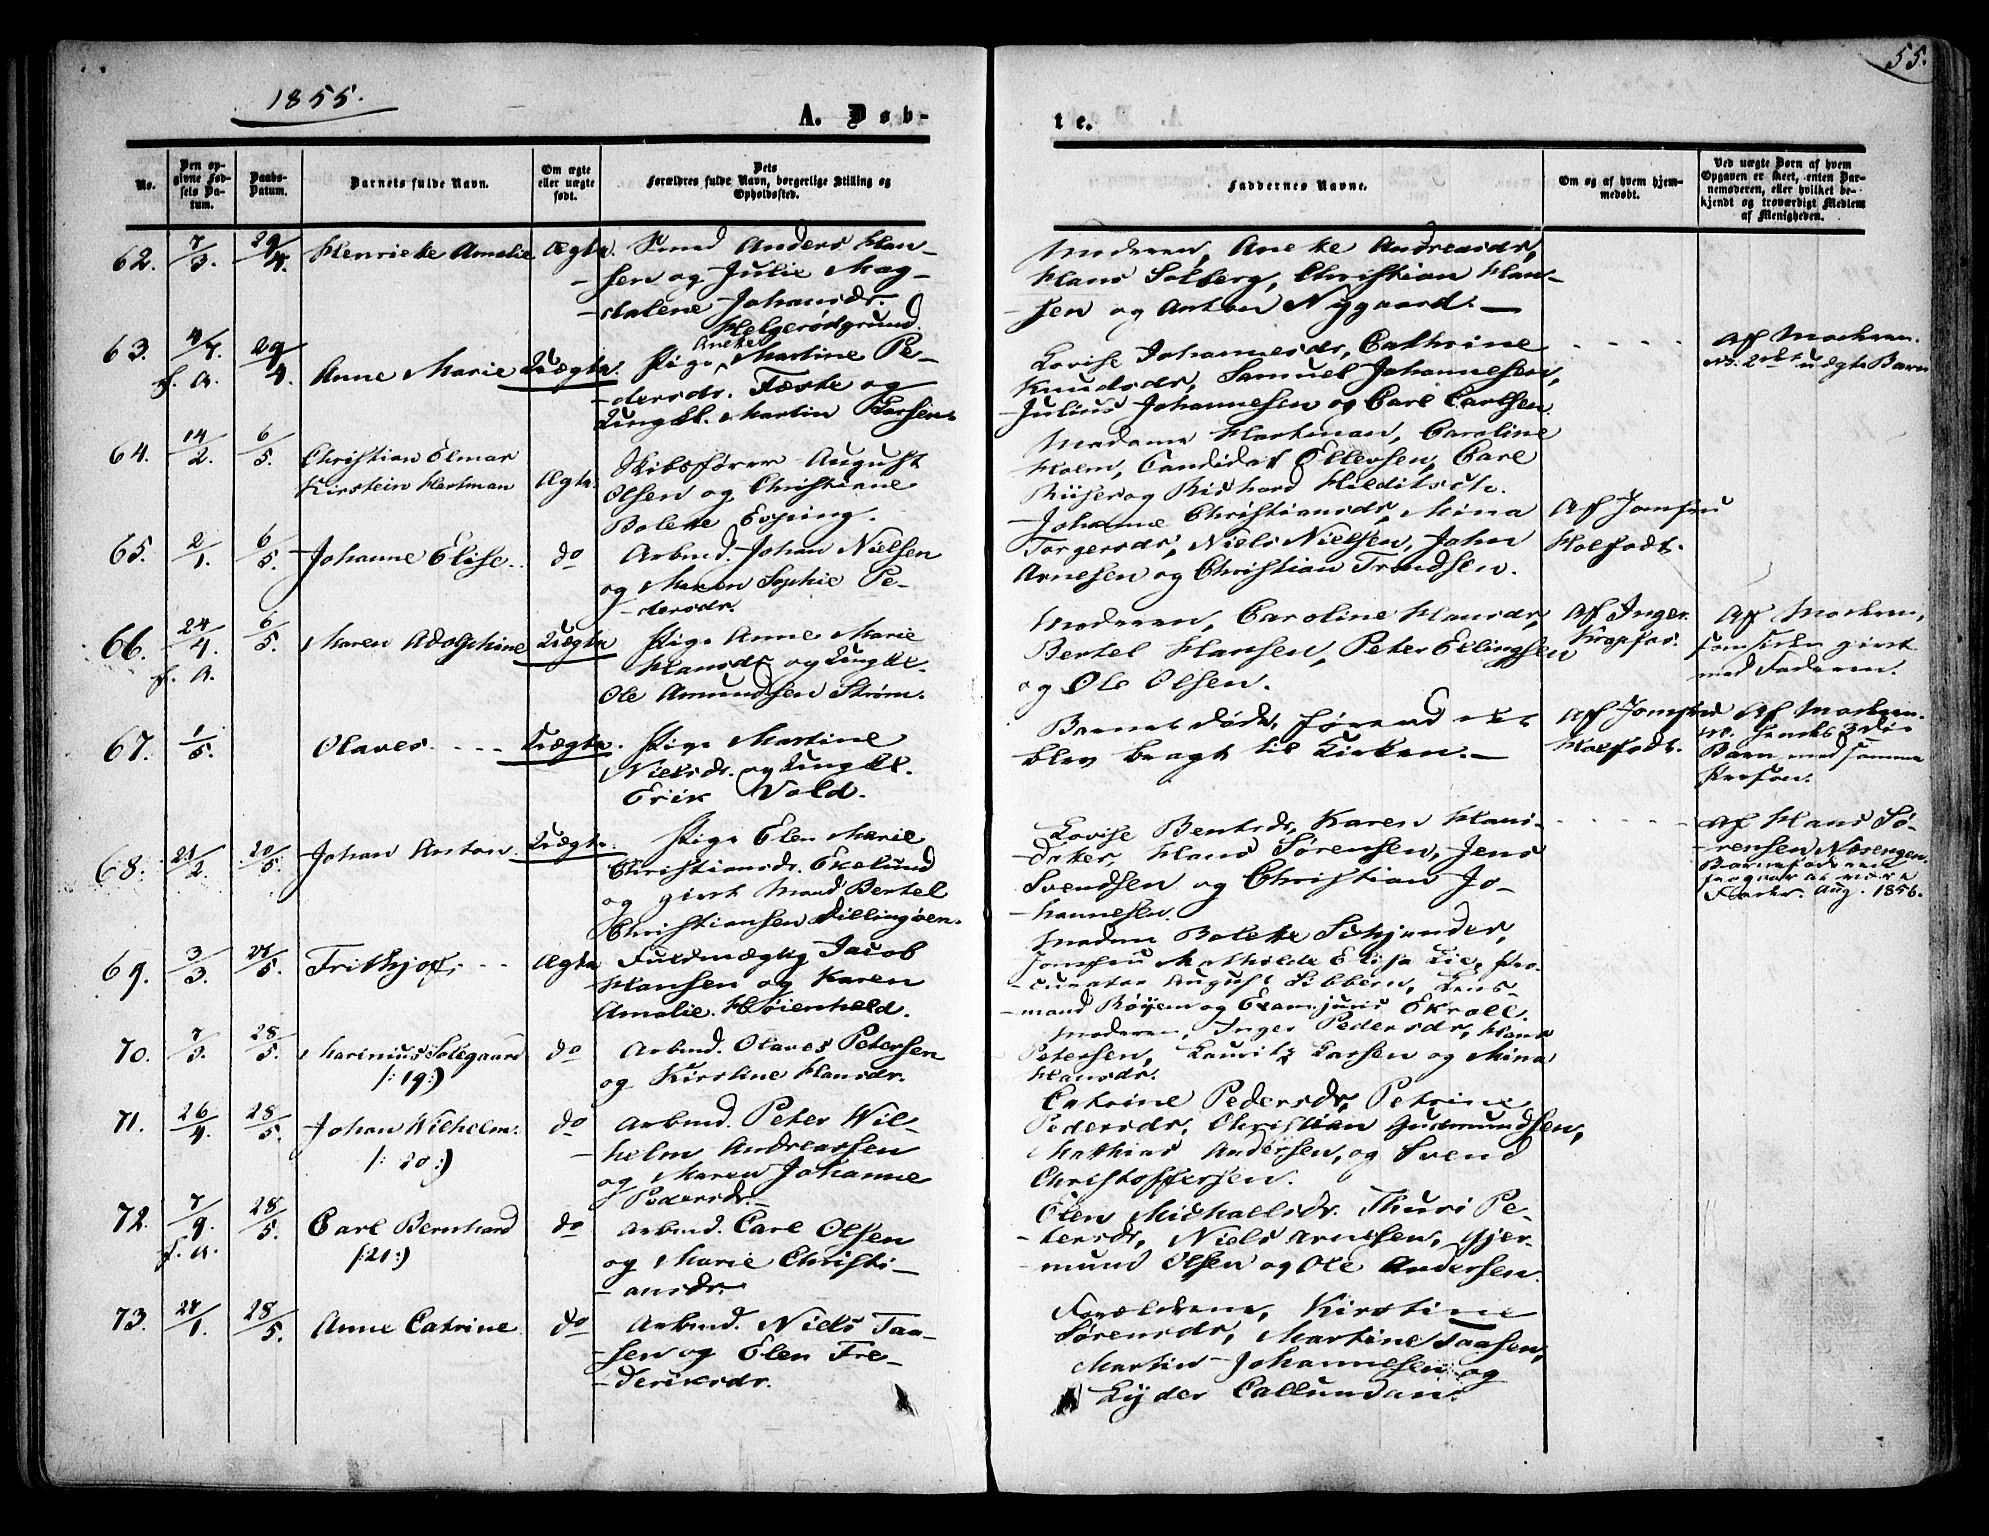 55.
1855.
A. Døb-
te.
No.
Den op-
givne Fød-
sels Da-
tum.
Daabs-
Datum.
Barnets fulde Navn.
Om ægte
eller uægte
født.
Dets
Forældres fulde Navn, borgerlige Stilling og
Opholdssted.
Faddernes Navne.
Om og af hvem hjem-
medøbt.
Ved uægte Børn af hvem
Opgaven er skeet, enten Bar-
nemoderen, eller hvilket be-
kjendt og troværdigt Medlem
af Menigheden.
62. 7/3. 29/4. Henriette Amalie Ægte.
Smed Anders Han-
sen og Julie Mag-
dalene Johansdr.
Helgerødgrund.
Moderen, Anethe Andreasdr,
Hans Solberg, Christian Han-
sen og Anton Nygaard. —
63. 4/4. f. a. 29/4. Anne Marie Uægte.
Anethe
Pige Martine Pe-
dersdr. Fæste og
Ungkl. Martin Larsen.
Lovise Johannesdr, Cathrine
Knudsdr, Samuel Johannesen,
Julius Johannesen og Carl Carlsen.
Af Modren.
No. 2det uægte Barn
64. 14/2. 6/5. Christian Elmar
Kirstein Hartman Ægte.
Skibsfører August
Olsen og Christiane
Bolette Esping.
Madame Hartman, Caroline
Holm, Candidat Ellefsen, Carl
Riiser og Richard Hilditsch.
65. 2/1. 6/5. Johanne Elise. do
Arbmd. Johan Nielsen
og Maren Sophie Pe-
dersdr.
Johanne Christiansdr, Mina
Torgersdr, Niels Nielsen, John
Arnesen og Christian Trondsen.
Af Jomfru
Holfodt.
66. 24/4. f. a. 6/5. Maren Adolphine Uægte
Pige Anne Marie
Hansdr og Ungkl.
Ole Amundsen Strøm.
Moderen, Caroline Hansdr,
Bertel Hansen, Peter Ellingsen
og Ole Olsen.
Af Inger
Krogfos.
Af Modren,
som siden givt
med Faderen.
67. 1/5. Olaves Uægte.
Pige Martine
Nielsdr. og Ungkl.
Erik Vold.
Barnet døde, førend det
blev bragt til Kirken. —
Af Jomfru
Holfodt.
Af Modren.
No. hendes 3die
Barn med samme
Person.
68. 21/2. 20/5. Johan Anton Uægte.
Pige Elen Marie
Christiansdr. Ekelund
og givt Mand Bertel
Christiansen Dillingøen.
Lovise Bentsdr, Karen Hans-
datter, Hans Sørensen, Jens
Svendsen og Christian Jo-
hannesen.
Af Hans Sø-
rensen Næsengen.
Aug. 1856.
69. 3/3. 5. Frithjof. Ægte
Fuldmægtig Jacob
Hansen og Karen
Amalie Høienheld.
Madam Bolette Schjander,
Jomfru Mathilde Elisa Lie, Pro-
curator August Sibbern, Lens-
mand Bøyem og Examjuris Ekroll.
70. 7/3. 28/5. Martinius Solegaard
/: 19 :) do
Arbmd. Olaves Petersen
og Kirstine Hansdr.
Moderen, Inger Pedersdr, Hans
Petersen, Lauritz Larsen og Mina
Hansdr.
71. 26/4. 28/5. Johan Wilhelm.
/: 20 :) do
Arbmd. Peter Wil-
helm Andreassen
og Maren Johanne
Pedersdr. —
Catrine Pedersdr, Petrine
Pedersdr, Christian Gudmundsen,
Mathias Andersen, og Svend
Christoffersen.
72. 7/9. f. a. 28/5. Carl Bernhard
/: 21 :) do
Arbmd. Carl Olsen
og Marie Christi-
ansdr.
Elen Michaelsdr. Thuri Pe-
tersdr, Niels Arnesen, Gjer-
mund Olsen og Ole Andersen.
73. 1. 28/5. Anne Catrine do
Arbmd. Niels Taa-
sen og Elen Fre-
deriksdr.
Forældrene, Kirstine
Sørensdr, Martine Taasen,
Martin Johannesen og
Lyder Callundan.